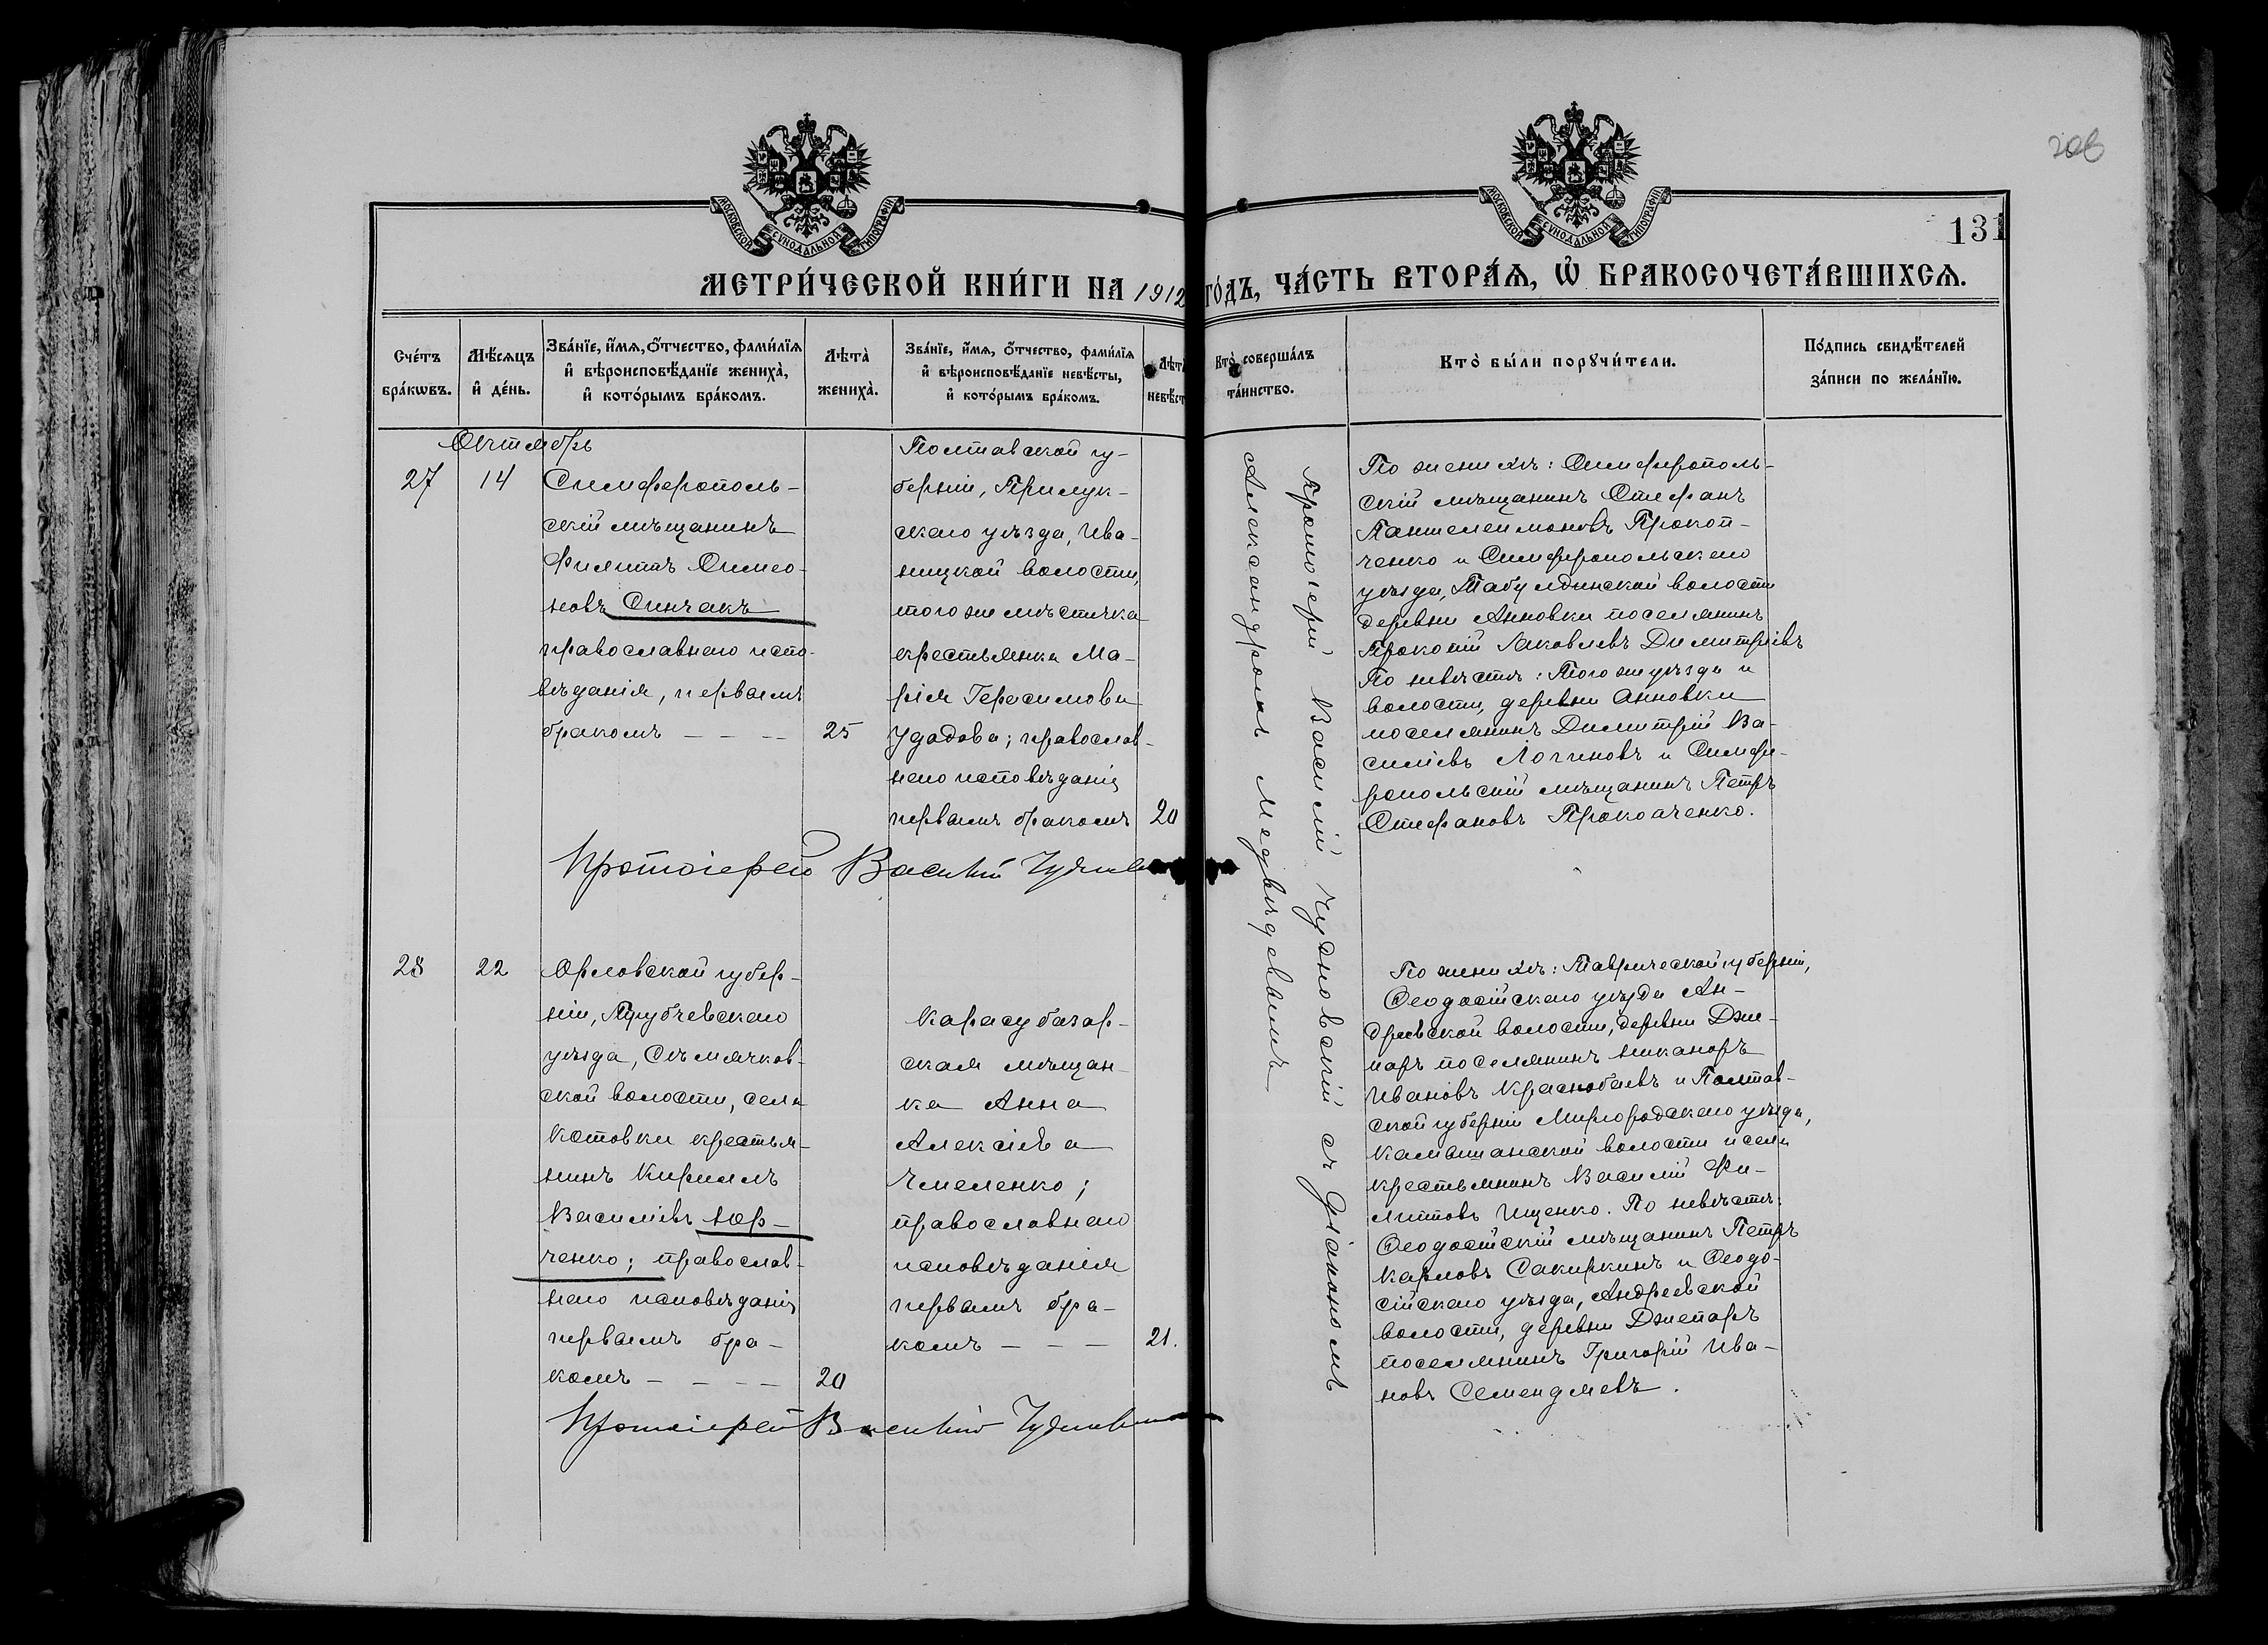 206
131
МОСКОВСКОЙ СѴНОДАЛЬНОЙ ТИПОГРАФІИ
МОСКОВСКОЙ СѴНОДАЛЬНОЙ ТИПОГРАФІИ
МЕТРИ́ЧЕСКОЙ КНИ́ГИ НА 1912 ГО́ДЪ, ЧА́СТЬ ВТОРА́Ѧ, Ѡ҆ БРАКОСОЧЕТА́ВШИХСѦ.
Сче́тъ
бра́кѡвъ.
Мѣ́сяцъ
и҆ де́нь.
Зва́нїе, и҆́мѧ, ѻ҆́тчество, фами́лїѧ
и҆ вѣроисповѣ́данїе жениха̀,
и҆ кото́рымъ бра́комъ.
Лѣта̀
жениха̀.
Зва́нїе, и҆́мѧ, ѻ҆́тчество, фами́лїѧ
и҆ вѣроисповѣ́данїе невѣ́сты,
и҆ кото́рымъ бра́комъ.
Лѣт
невѣст
Кто̀ соверша́лъ
та́инство.
Кто̀ бы́ли порꙋчи́тели.
По́дпись свидѣ́телей
за́писи по жела́нїю.
Октябрь
27
14
Симферополь-
скій мѣщанинъ
Филиппъ Симео-
новъ Синчакъ
православнаго испо-
вѣданія, первымъ
бракомъ - - - -
25
Полтавской гу-
берніи, Прилук-
скаго уѣзда, Ива-
ницкой волости,
того же мѣстечка
крестьянка Ма-
рія Герасимова
Удодова; православ-
наго исповѣданія
первымъ бракомъ
20
Протоіерей Василій
Протоіерей Василій Чудновскій съ діакономъ
Александромъ Медвѣдевымъ
По женихѣ: Симферополь-
скій мѣщанинъ Стефанъ
Пантелеимоновъ Прокоп-
ченко и Симферопольскаго
уѣзда, Табулдинской волости
деревни Анновки поселянинъ
Прокопій Іаковлевъ Димитріевъ
По невѣстѣ: Того же уѣзда и
волости, деревни Анновки
поселянинъ Димитрій Ва-
силіевъ Логиновъ и Симфе-
ропольскій мѣщанинъ Петръ
Стефановъ Прокопченко.
28
22
Орловской губер-
ніи, Трубчевскаго
уѣзда, Сѣмячков-
ской волости, села
Котовки крестья-
нинъ Кириллъ
Василіевъ Юр-
ченко; православ-
наго исповѣданія,
первымъ бра-
комъ - - - -
20
Карасубазар-
ская мѣщан-
ка Анна
Алексіева
Чмеленко;
православнаго
исповѣданія
первымъ бра-
комъ - - -
21.
Протоіерей Василій
По женихѣ: Таврической губерніи,
Ѳеодосійскаго уѣзда Ан-
дреевской волости, деревни Дже-
паръ поселянинъ Никаноръ
Ивановъ Краснобаевъ и Полтав-
ской губерніи Миргородскаго уѣзда,
волости и села
крестьянинъ Василій Фи-
липповъ Ищенко. По невѣстѣ:
Ѳеодосійскій мѣщанинъ Петръ
Карповъ Сакиркинъ и Ѳеодо-
сійскаго уѣзда, Андреевской
волости, деревни Джепаръ
поселянинъ Григорій Ива-
новъ Семендяевъ.